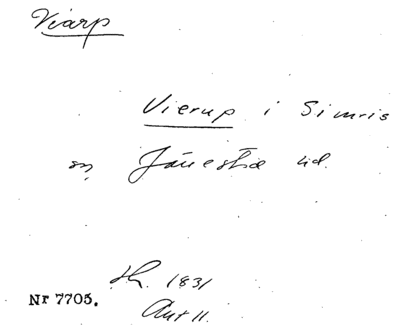 Viarp
Vierup i Simris
sn, Järrestad hd.
1831
Nr 7705.